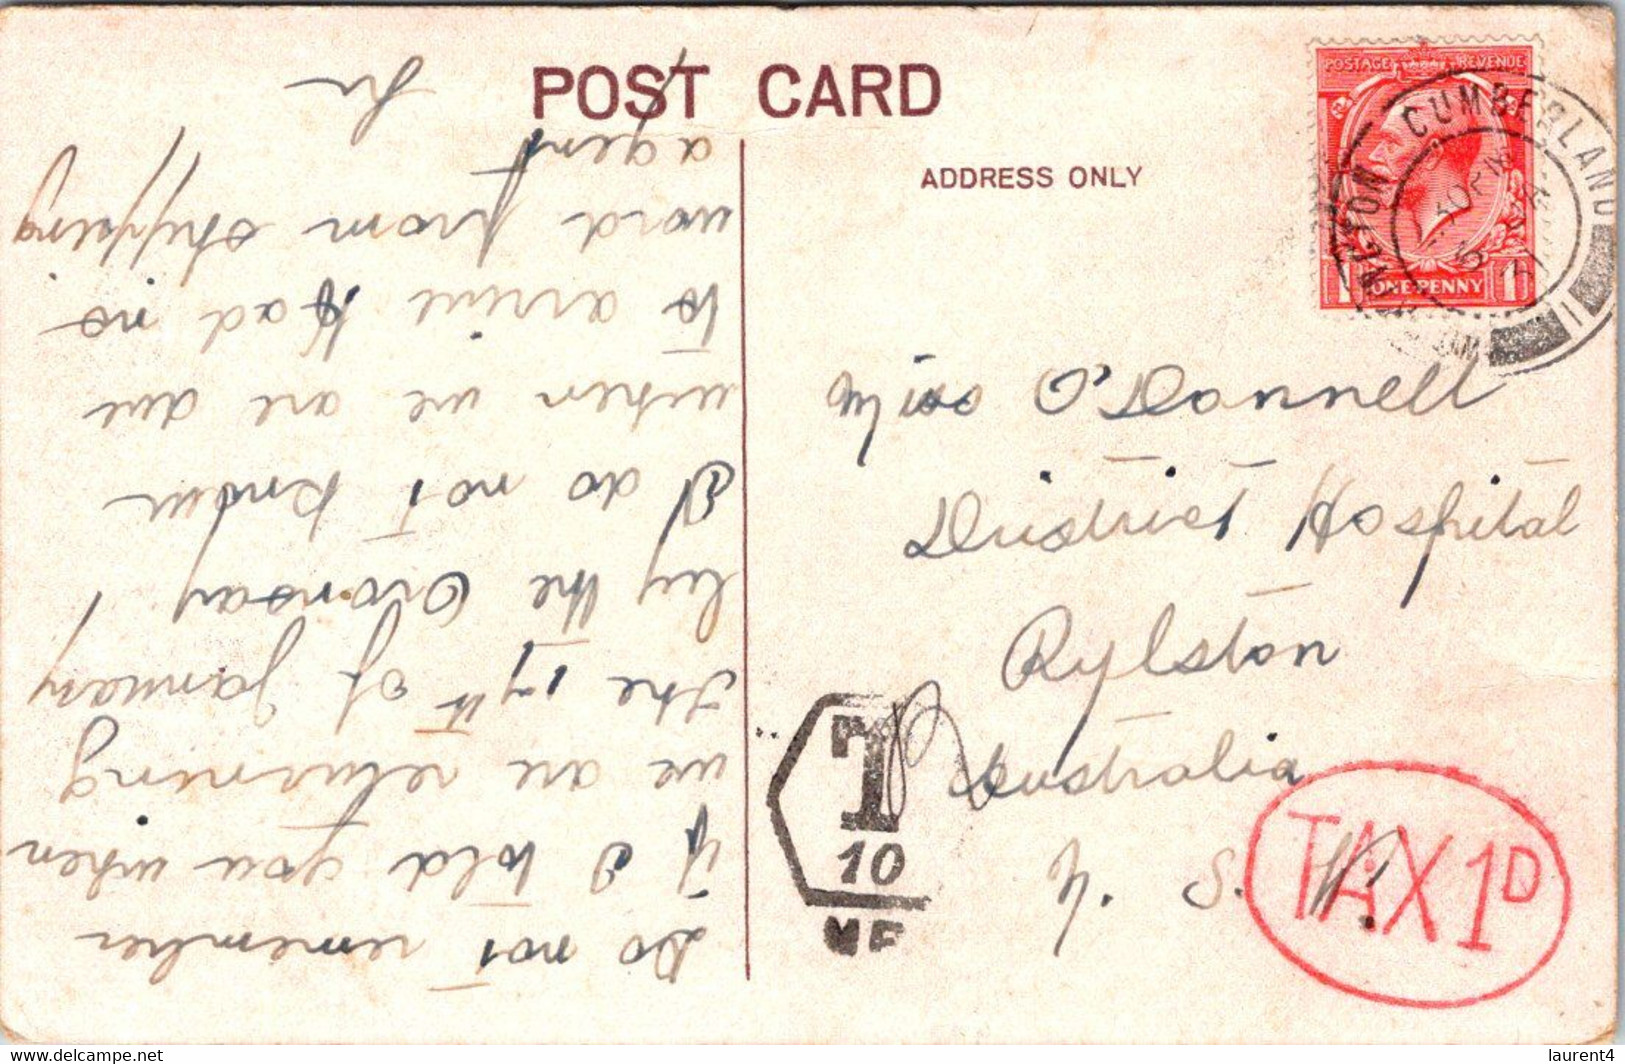 POST CARD
ADDRESS ONLY
POSTAGE REVENUE
1 ONE PENNY 1
CUMBERLAND
Miss O'Donnell
District Hospital
Rylston
Australia
N. S. W.
T
10
TAX 1D
Do not remember
if I told you when
we are returning
the 17th of January
by the Oronsay!
I do not know
when we are due
to arrive Had no
word from shipping
agent
laurent4